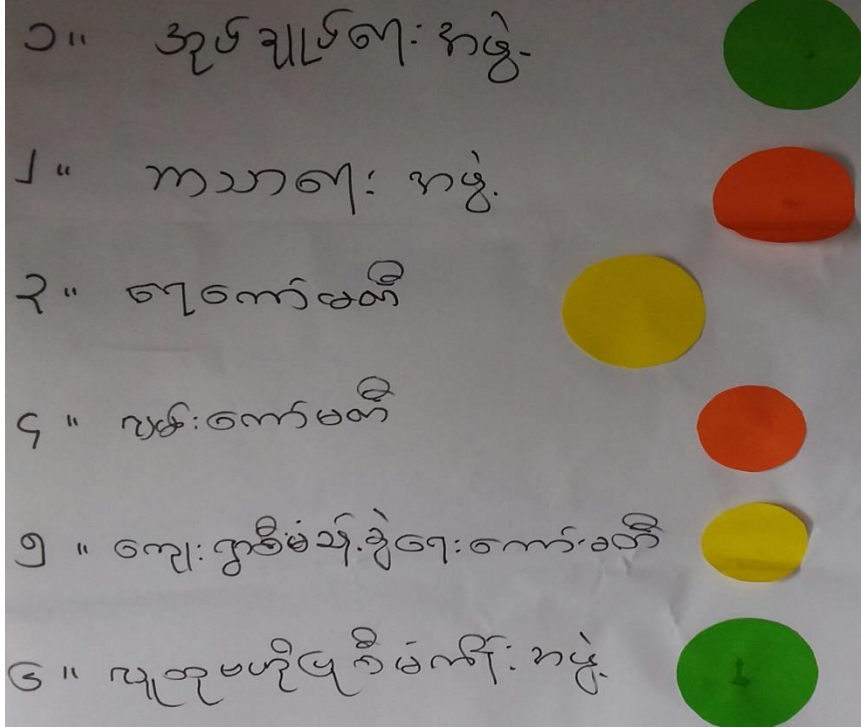 ၁။ အုပ်ချုပ်ရေး အဖွဲ့
၂။ ဘာသာရေး အဖွဲ့
၃။ ရေကော်မတီ
၄။ လမ်းကော်မတီ
၅။ ကျေးရွာစီမံခန့်ခွဲရေးကော်မတီ
၆။ လူထုဗဟိုပြုစီမံကိန်း အဖွဲ့